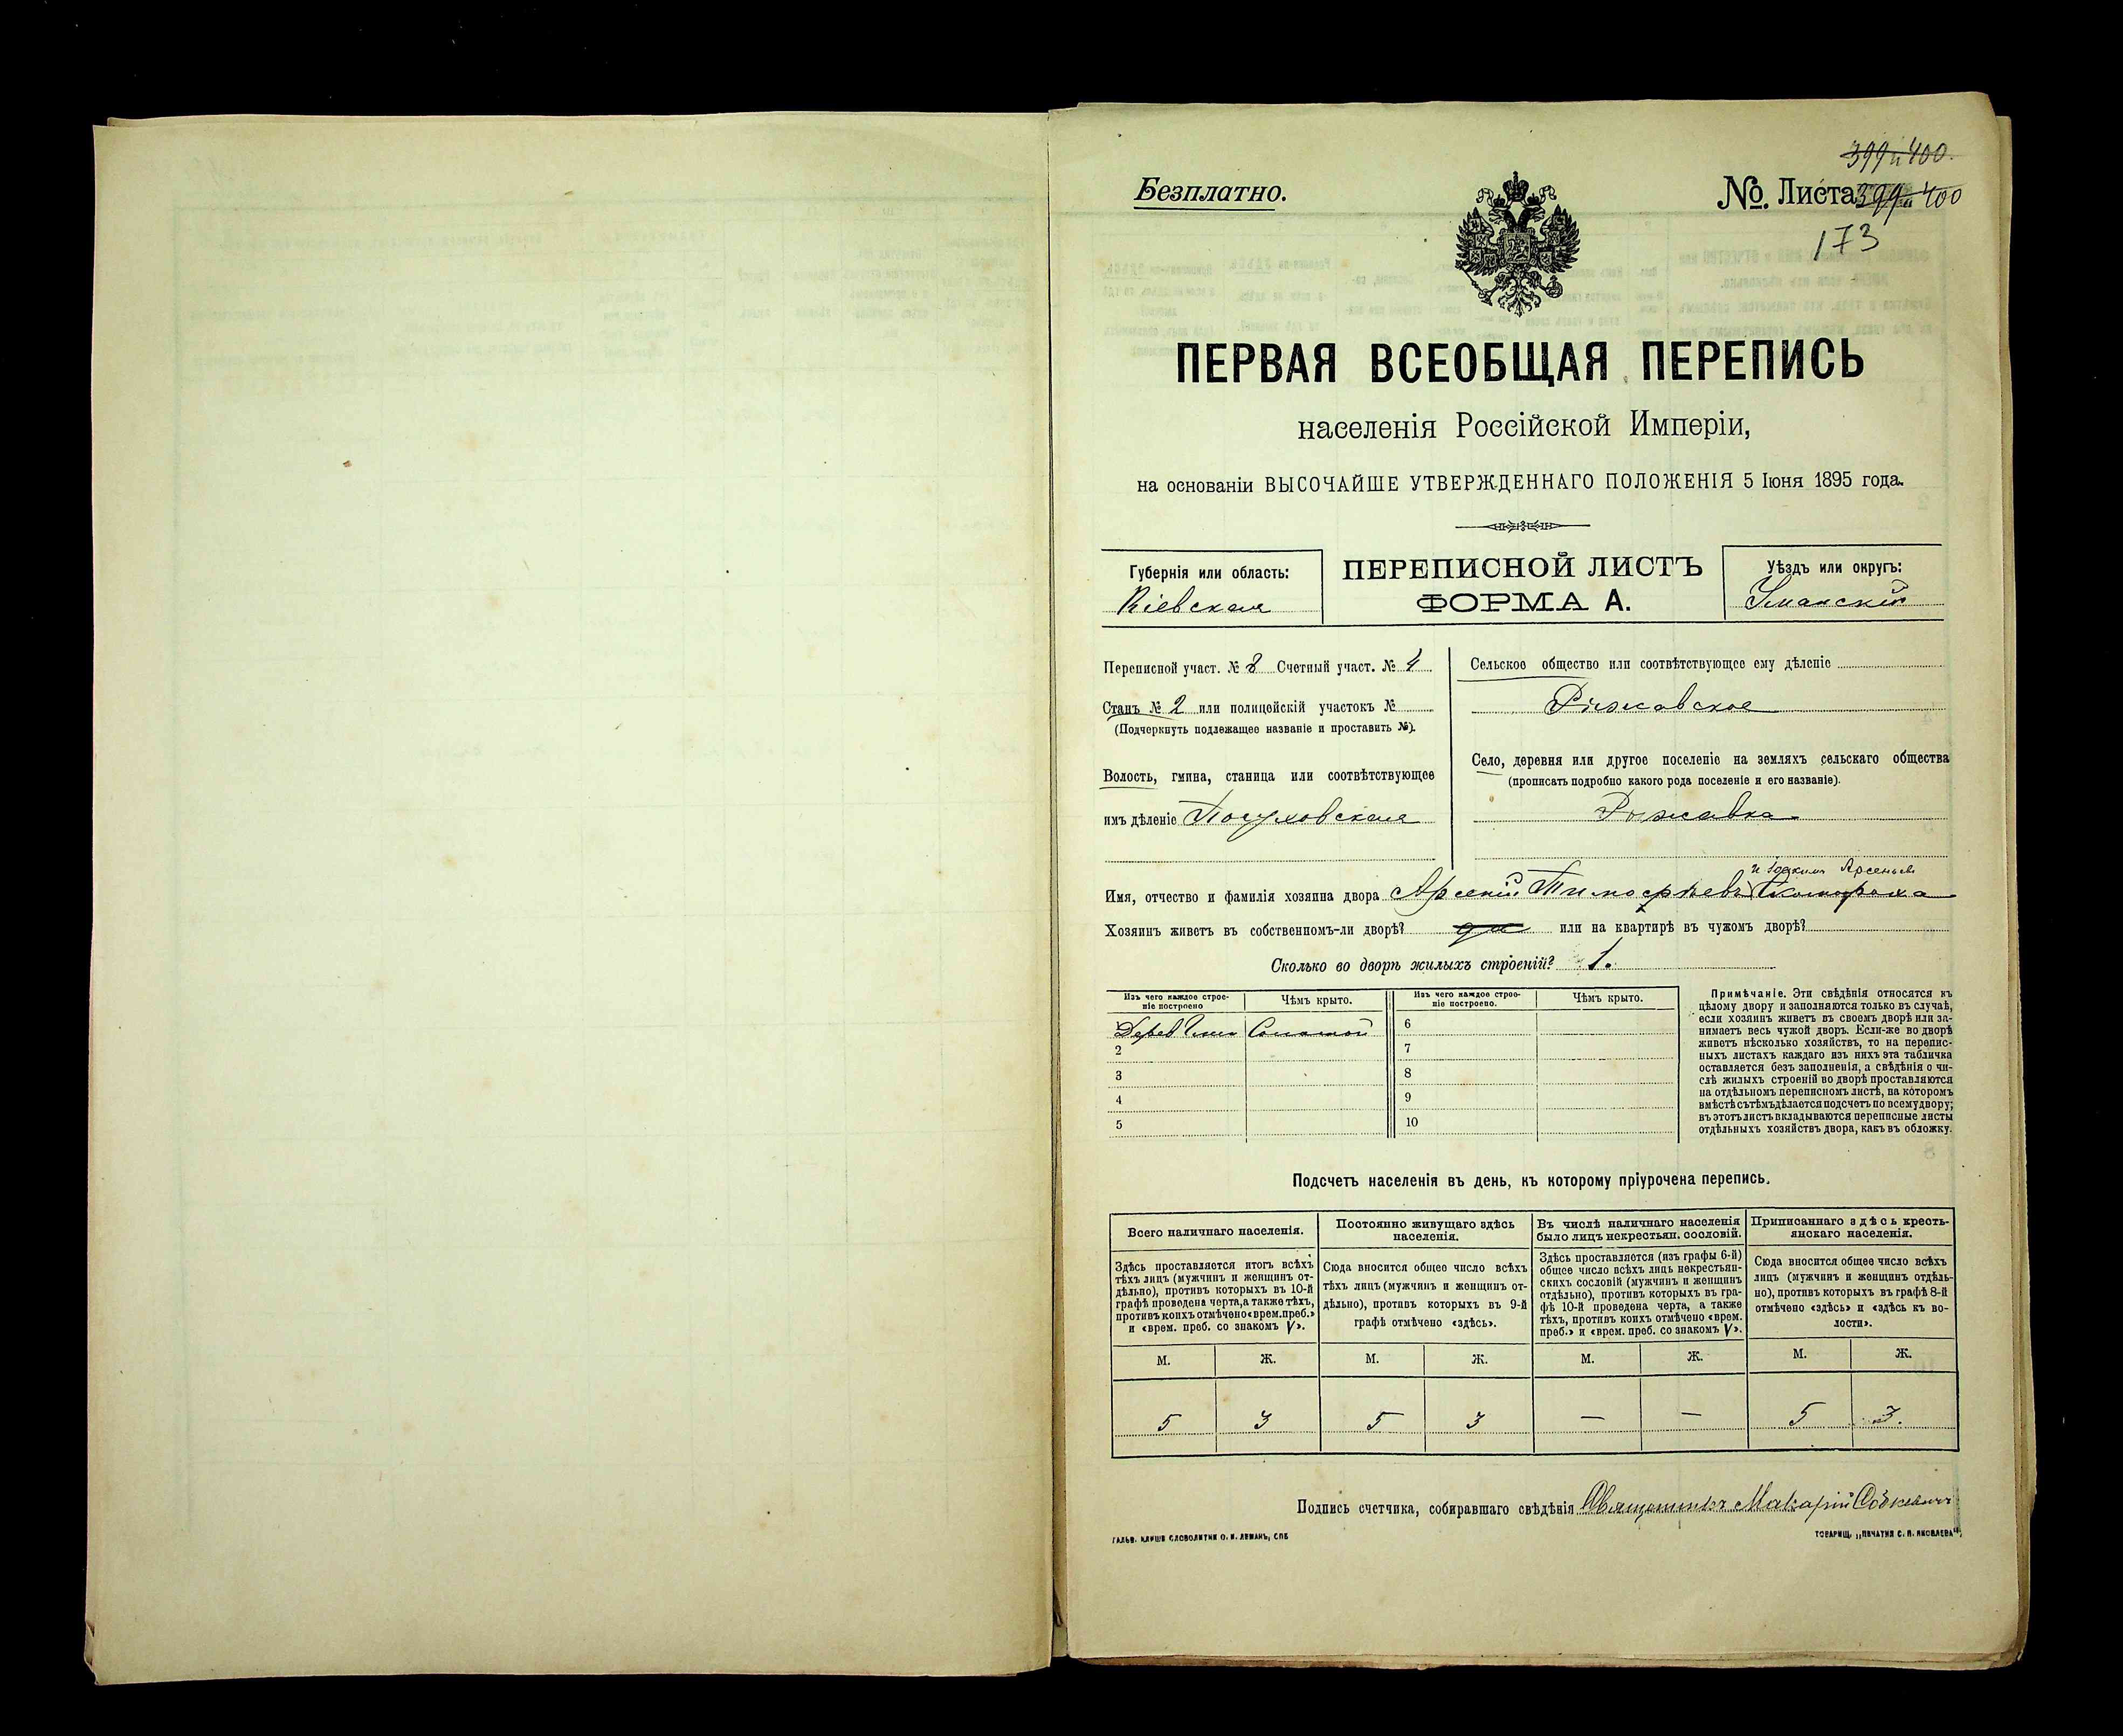 399 и 400.
Безплатно.
№ Листа 399 и 400
173
ПЕРВАЯ ВСЕОБЩАЯ ПЕРЕПИСЬ
населенія Россійской Имперіи,
на основаніи ВЫСОЧАЙШЕ УТВЕРЖДЕННАГО ПОЛОЖЕНІЯ 5 Іюня 1895 года.
Губернія или область:
Кіевская
ПЕРЕПИСНОЙ ЛИСТЪ
ФОРМА А.
Уѣздъ или округъ:
Уманскій
Переписной участ. № 8 Счетный участ. № 4
Станъ № 2 или полицейскій участокъ №
(Подчеркнуть подлежащее названіе и проставить №).
Волость, гмина, станица или соотвѣтствующее
имъ дѣленіе Посуховская
Сельское общество или соотвѣтствующее ему дѣленіе
Рыжавское
Село, деревня или другое поселеніе на земляхъ сельскаго общества
(прописать подробно какого рода поселеніе и его названіе).
Рыжавка
и Іоакимъ Арсеньевъ
Имя, отчество и фамилія хозяина двора Арсеній Тимофѣевъ
Хозяинъ живетъ въ собственномъ-ли дворѣ? да или на квартирѣ въ чужомъ дворѣ?
Сколько во дворѣ жилыхъ строеній? 1.
Изъ чего каждое строеніе построено
Чѣмъ крыто.
Изъ чего каждое строеніе построено.
Чѣмъ крыто.
1 Соломой
2
3
4
5
6
7
8
9
10
Примѣчаніе. Эти свѣдѣнія относятся къ
цѣлому двору и заполняются только въ случаѣ,
если хозяинъ живетъ въ своемъ дворѣ или за-
нимаетъ весь чужой дворъ. Если-же во дворѣ
живетъ нѣсколько хозяйствъ, то на перепис-
ныхъ листахъ каждаго изъ нихъ эта табличка
оставляется безъ заполненія, а свѣдѣнія о чи-
слѣ жилыхъ строеній во дворѣ проставляются
на отдѣльномъ переписномъ листѣ, на которомъ
вмѣстѣ съ тѣмъ дѣлается подсчетъ по всему двору;
въ этотъ листъ вкладываются переписные листы
отдѣльныхъ хозяйствъ двора, какъ въ обложку.
Подсчетъ населенія въ день, къ которому пріурочена перепись.
Всего наличнаго населенія.
Здѣсь проставляется итогъ всѣхъ
тѣхъ лицъ (мужчинъ и женщинъ от-
дѣльно), противъ которыхъ въ 10-й
графѣ проведена черта, а также тѣхъ,
противъ коихъ отмѣчено «врем. преб.»
и «врем. преб. со знакомъ V».
Постоянно живущаго здѣсь
населенія.
Сюда вносится общее число всѣхъ
тѣхъ лицъ (мужчинъ и женщинъ от-
дѣльно), противъ которыхъ въ 9-й
графѣ отмѣчено «здѣсь».
Въ числѣ наличнаго населенія
было лицъ некрестьян. сословій.
Здѣсь проставляется (изъ графы 6-й)
общее число всѣхъ лицъ некрестьян-
скихъ сословій (мужчинъ и женщинъ
отдѣльно), противъ которыхъ въ гра-
фѣ 10-й проведена черта, а также
тѣхъ, противъ коихъ отмѣчено «врем.
преб.» и «врем. преб. со знакомъ V».
Приписаннаго здѣсь кресть-
янскаго населенія.
Сюда вносится общее число всѣхъ
лицъ (мужчинъ и женщинъ отдѣль-
но), противъ которыхъ въ графѣ 8-й
отмѣчено «здѣсь» и «здѣсь къ во-
лости».
М. Ж. М. Ж. М. Ж. М. Ж.
5 3 5 3 — — 5 3.
Подпись счетчика, собиравшаго свѣдѣнія Священникъ Макарій
ГАЛЬВ. КЛИШЕ СЛОВОЛИТНИ О. И. ЛЕМАНЪ, СПБ
ТОВАРИЩ. „ПЕЧАТНЯ С. П. ЯКОВЛЕВА".